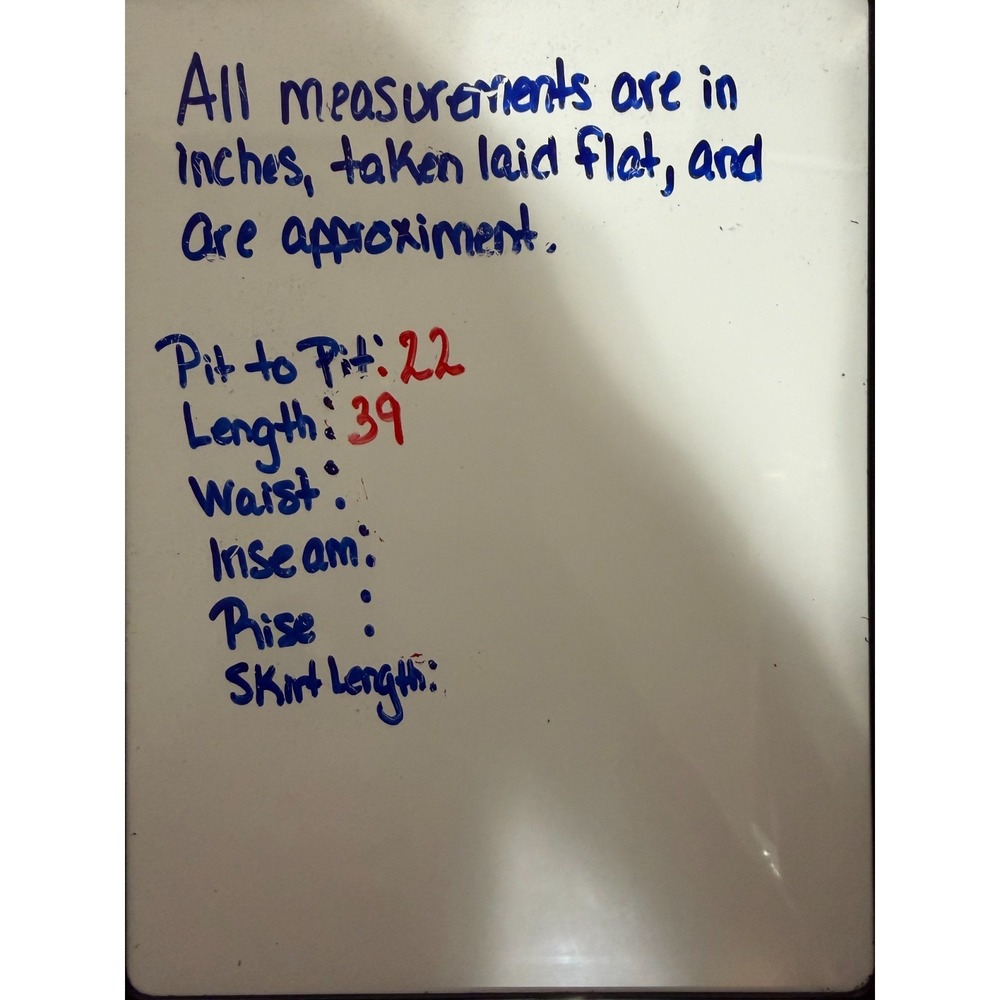 All measurements are in
inches, taken laid flat, and
are approximent.
Pit to Pit: 22
Length: 39
Waist:
Inseam:
Rise :
Skirt Length: